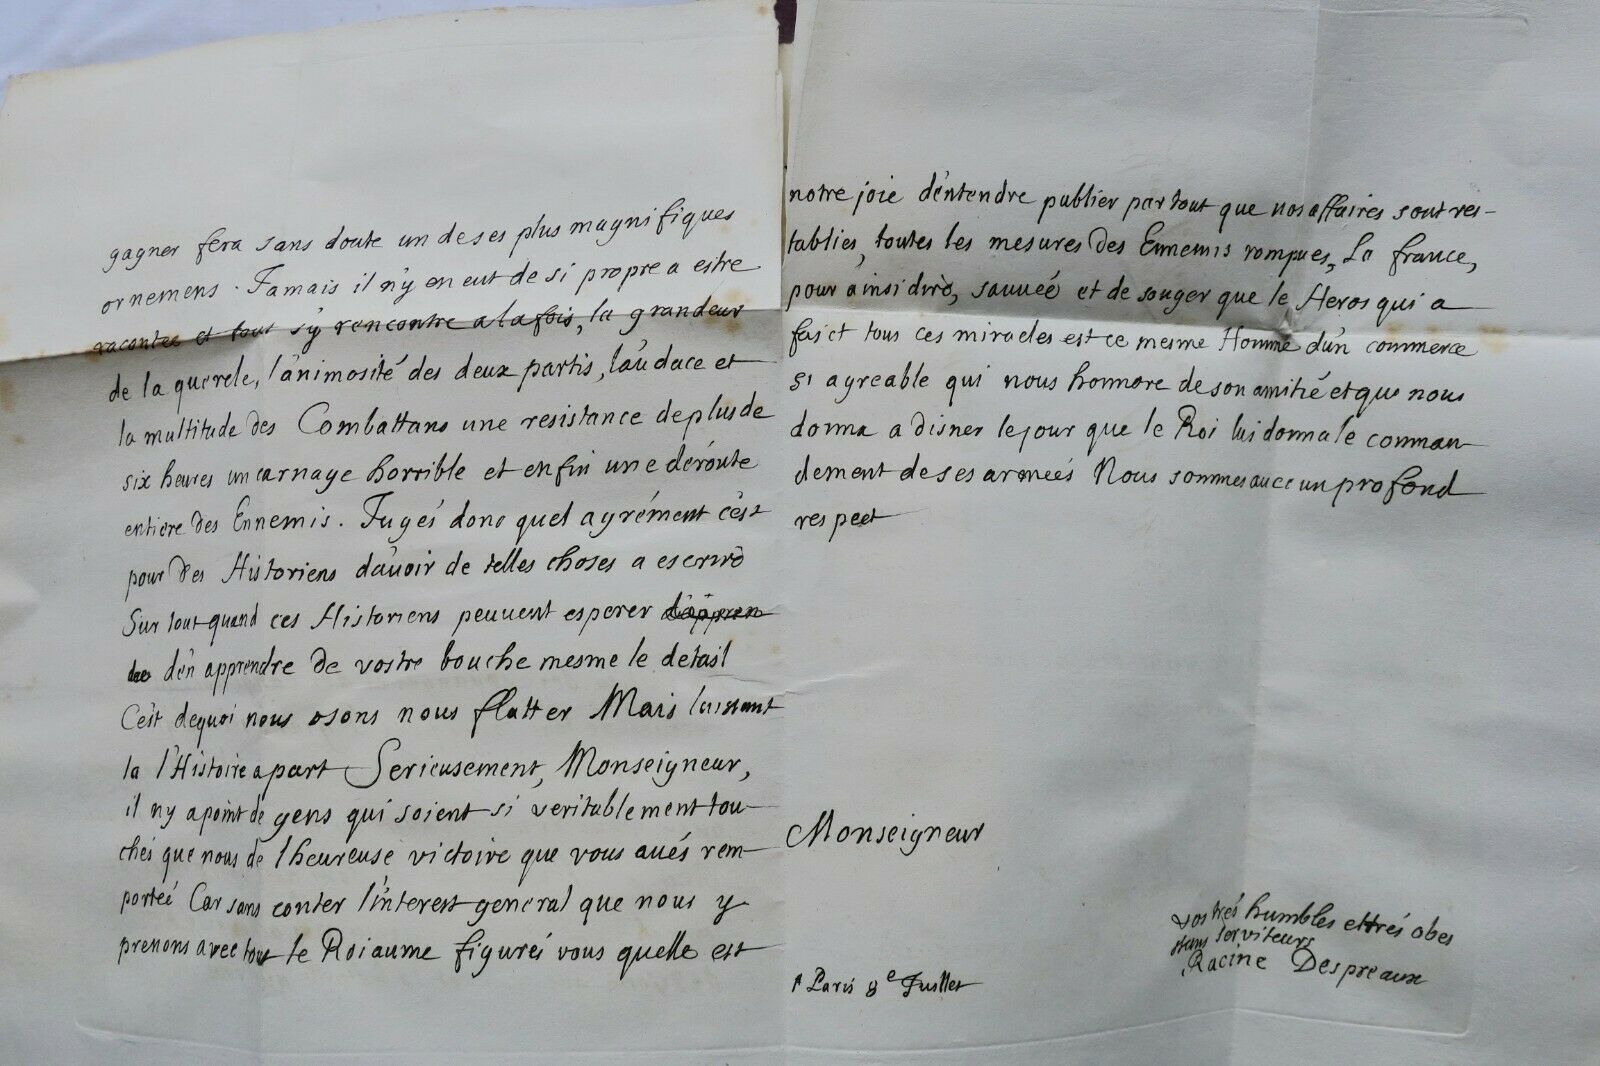 gagner fera sans doute un de ses plus magnifiques
ornemens. Jamais il n'y en eut de si propre a estre
racontée et tout s'y rencontre a la fois, la grandeur
de la querele, l'animosité des deux partis, l'audace et
la multitude des Combattans une resistance de plus de
six heures un carnage horrible et enfin une déroute
entiere des Ennemis. Jugés donc quel agrément c'est
pour des Historiens d'auoir de telles choses a escrire
Sur tout quand ces Historiens peuuent esperer d'appren
dre d'en apprendre de vostre bouche mesme le detail
C'est dequoi nous osons nous flatter Mais laissant
la l'Histoire a part Serieusement, Monseigneur,
il ny a point de gens qui soient si veritablement tou-
chés que nous de l'heureuse victoire que vous aués rem-
portée Car sans conter l'interest general que nous y
prenons avec tout le Roiaume figurés vous quelle est
notre joie d'entendre publier par tout que nos affaires sont res-
tablies, toutes les mesures des Ennemis rompues, La france,
pour ainsi dire, sauuée et de songer que le Heros qui a
faict tous ces miracles est ce mesme Homme d'un commerce
si agreable qui nous honnore de son amitié et que nous
donna a disner le jour que le Roi lui donna le comman-
dement de ses armées Nous sommes auec un profond
respect
Monseigneur
vos trés humbles et trés obeis
sans serviteurs
Racine Despreaux
A Paris 8e Juillet